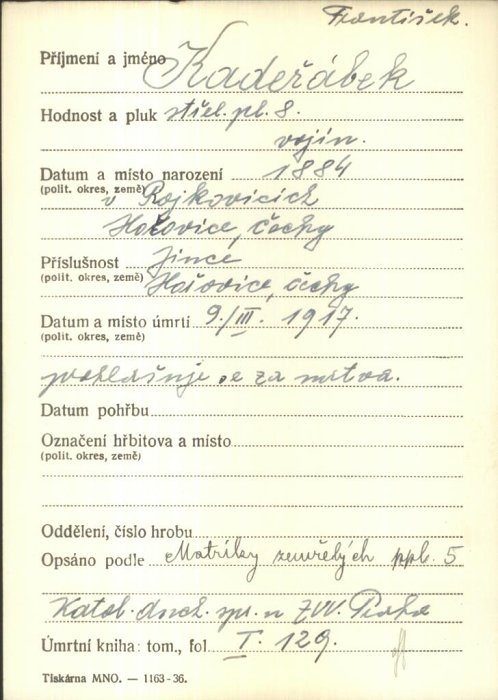 František.
Příjmení a jméno Kadeřábek
Hodnost a pluk střel. pl. 8.
vojín.
Datum a místo narození 1884
(polit. okres, země) v Rojkovicích
Hořovice, čechy
Příslušnost Jince
(polit. okres, země) Hořovice, čechy
Datum a místo úmrtí 9./III. 1917.
(polit. okres, země)
prohlašuje se za mrtva.
Datum pohřbu
Označení hřbitova a místo
(polit. okres, země)
Oddělení, číslo hrobu
Opsáno podle Matriky zemřelých ppl. 5
Katol. duch. spr. u ZVV. Praha
Úmrtní kniha: tom., fol. I. 129.
Tiskárna MNO. — 1163-36.